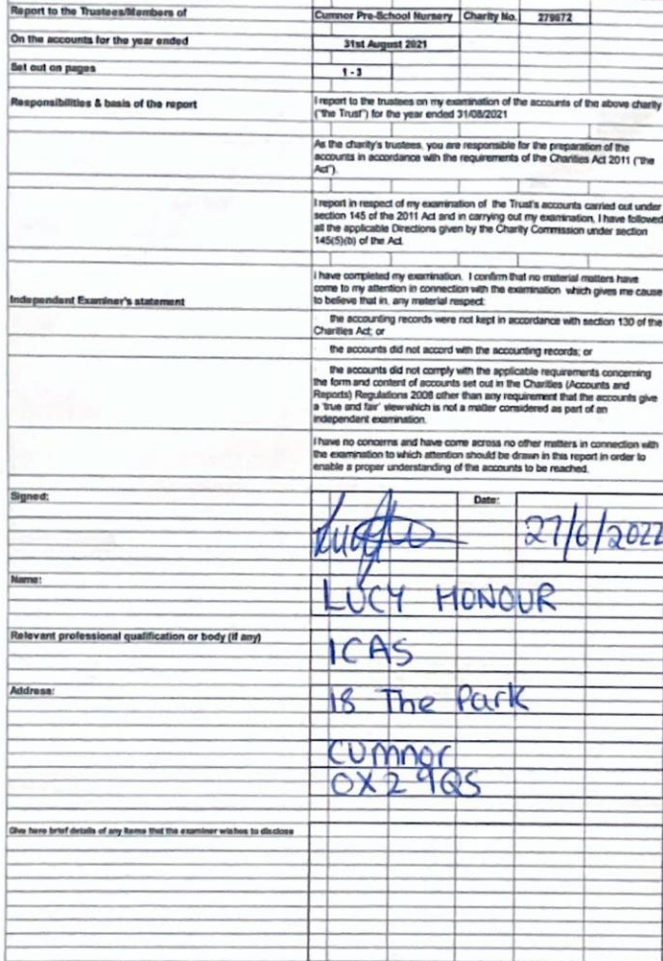 Report to the Trustees/Members of Cumnor Pre-School Nursery Charity No. 279672
On the accounts for the year ended 31st August 2021
Set out on pages 1 - 3
Responsibilities & basis of the report I report to the trustees on my examination of the accounts of the above charity
("the Trust") for the year ended 31/08/2021
As the charity's trustees, you are responsible for the preparation of the
accounts in accordance with the requirements of the Charities Act 2011 ("the
Act").
I report in respect of my examination of the Trust's accounts carried out under
section 145 of the 2011 Act and in carrying out my examination, I have followed
all the applicable Directions given by the Charity Commission under section
145(5)(b) of the Act.
I have completed my examination. I confirm that no material matters have
come to my attention in connection with the examination which gives me cause
Independent Examiner's statement to believe that in, any material respect:
the accounting records were not kept in accordance with section 130 of the
Charities Act; or
the accounts did not accord with the accounting records; or
the accounts did not comply with the applicable requirements concerning
the form and content of accounts set out in the Charities (Accounts and
Reports) Regulations 2008 other than any requirement that the accounts give
a 'true and fair' view which is not a matter considered as part of an
independent examination.
I have no concerns and have come across no other matters in connection with
the examination to which attention should be drawn in this report in order to
enable a proper understanding of the accounts to be reached.
Signed: Date: 27/6/2022
Name: LUCY HONOUR
Relevant professional qualification or body (if any) ICAS
Address: 18 The Park
CUMNOR
OX2 9QS
Give here brief details of any items that the examiner wishes to disclose